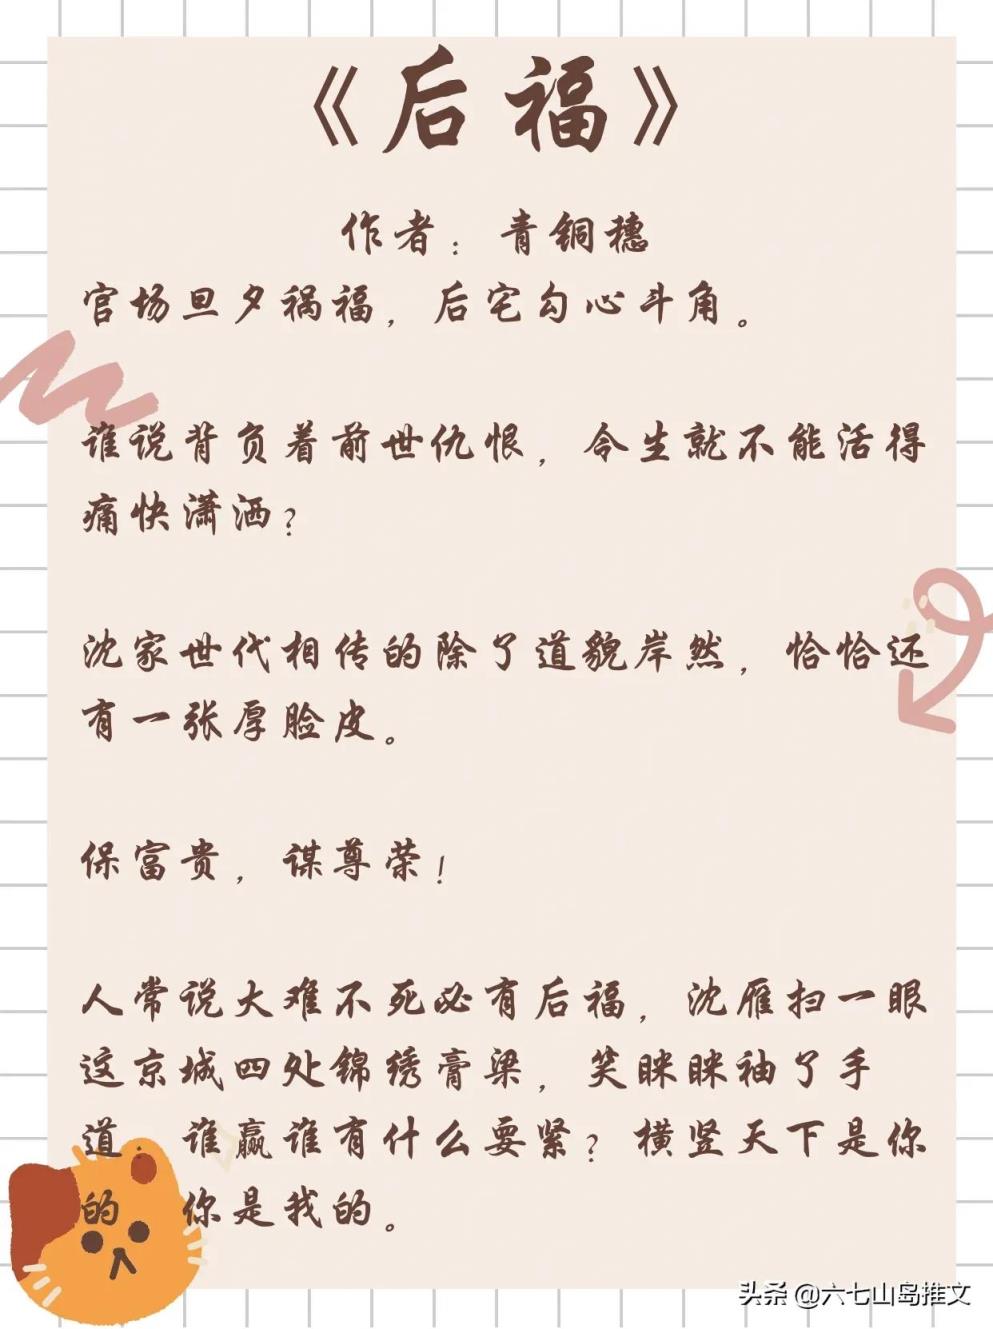 《后福》
作者：青铜穗
官场旦夕祸福，后宅勾心斗角。
谁说背负着前世仇恨，今生就不能活得
痛快潇洒？
沈家世代相传的除了道貌岸然，恰恰还
有一张厚脸皮。
保富贵，谋尊荣！
人常说大难不死必有后福，沈雁扫一眼
这京城四处锦绣膏梁，笑眯眯袖了手
道：谁赢谁有什么要紧？横竖天下是你
的 你是我的。
头条 @六七山岛推文